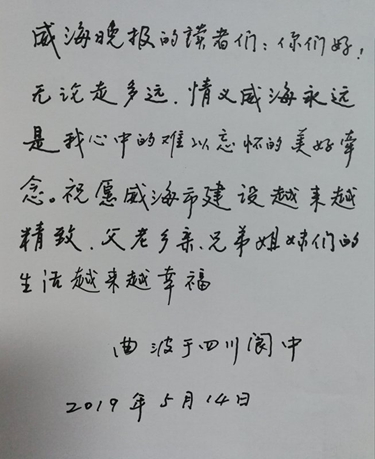 威海晚报的读者们：你们好！
无论走多远，情义威海永远
是我心中的难以忘怀的美好牵
念。祝愿威海市建设越来越
精致，父老乡亲、兄弟姐妹们的
生活越来越幸福
曲波于四川阆中
2019年5月14日